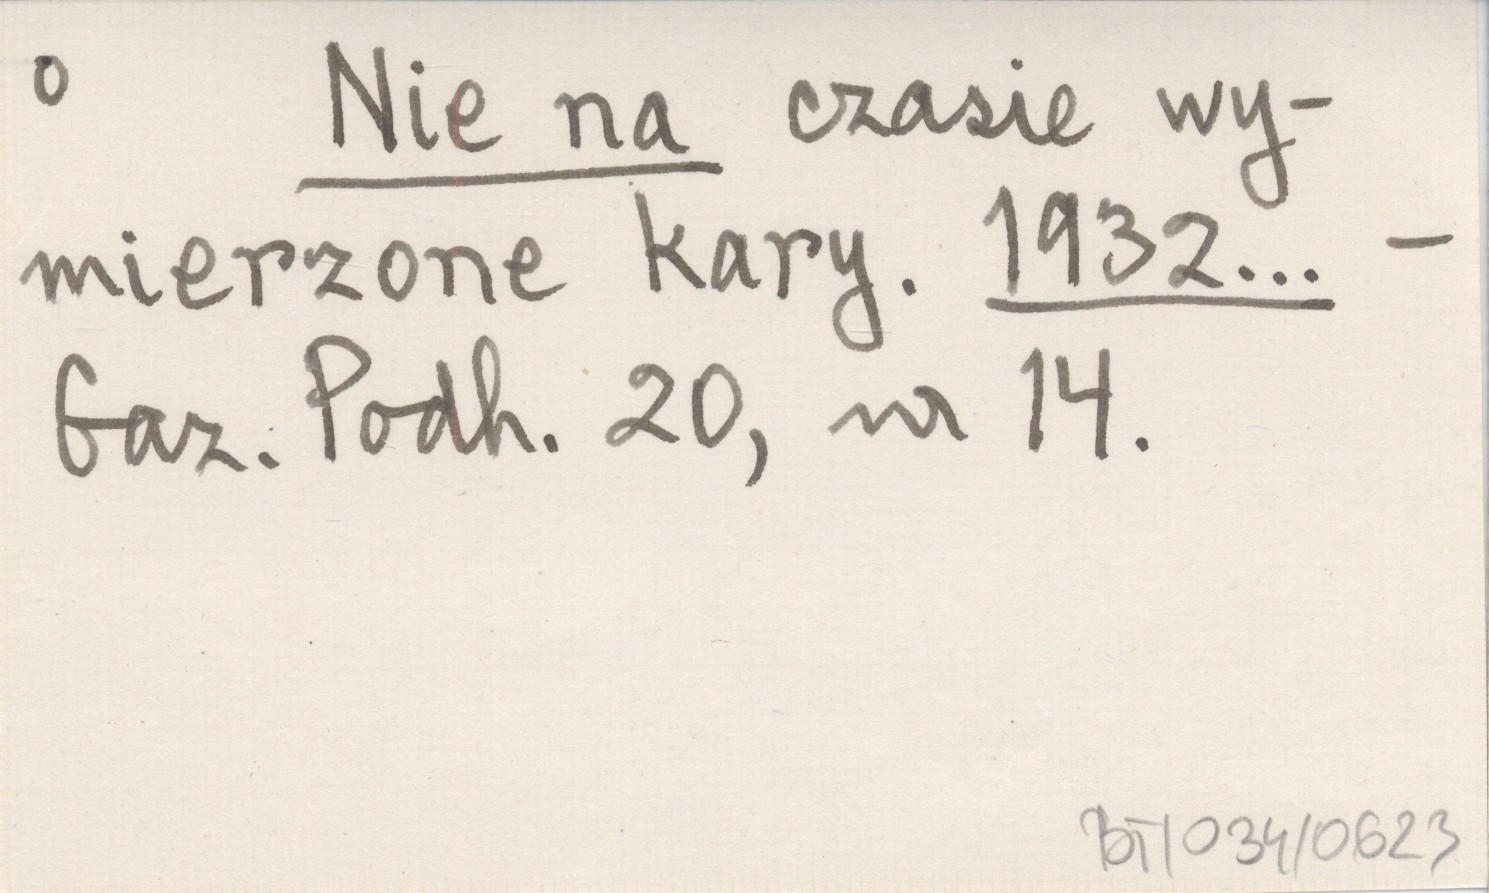 o Nie na czasie wy-
mierzone kary. 1932... –
Gaz. Podh. 20, nr 14.
BT/034/0623